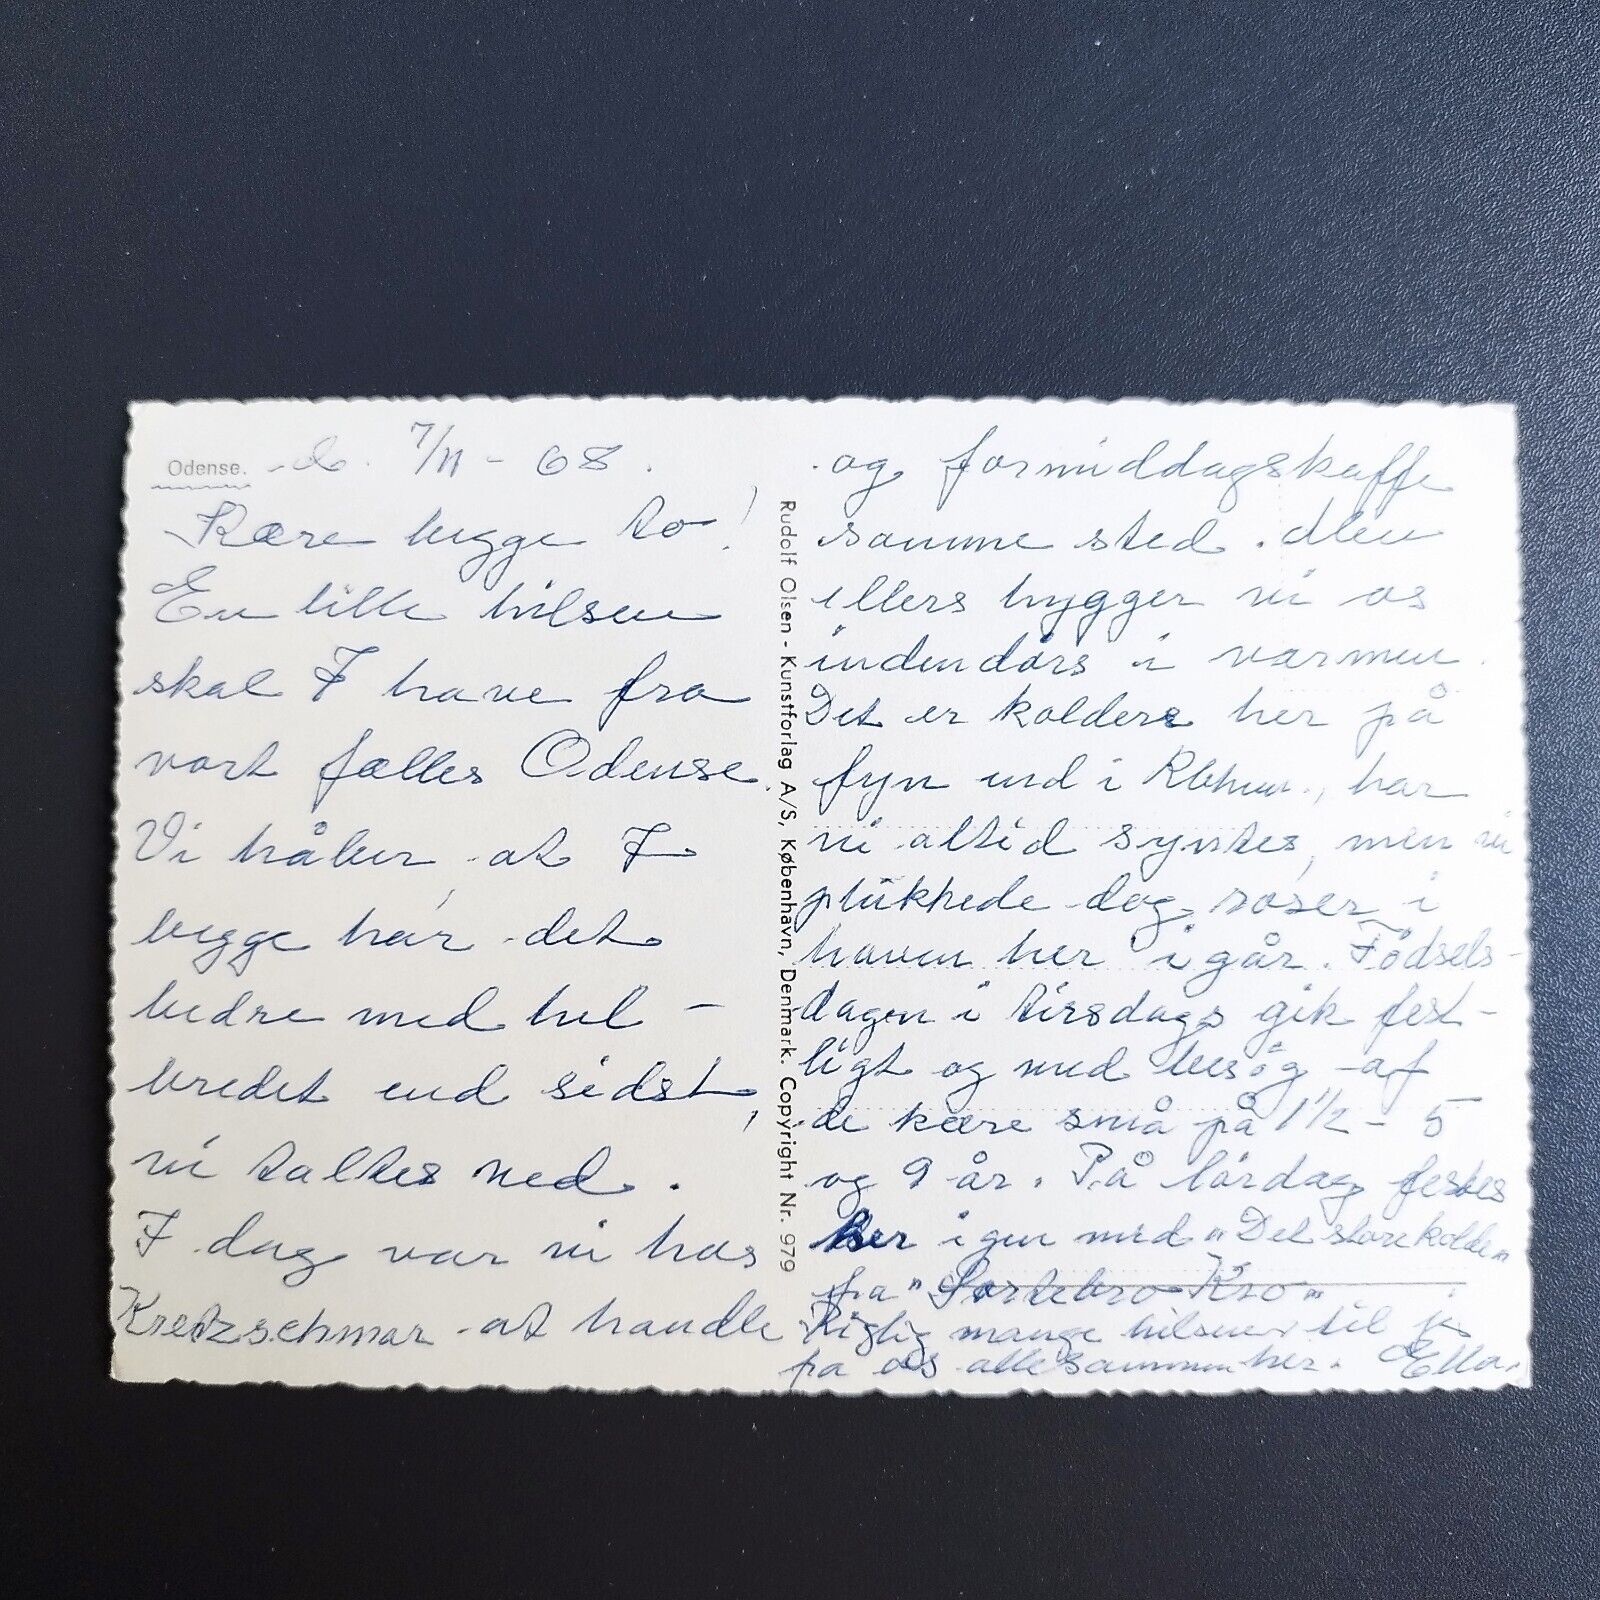 Odense. d. 7/11 - 68.
Kære begge to!
En lille hilsen
skal I have fra
vort fælles Odense.
Vi håber at I
begge har det
bedre med hel-
bredet end sidst,
vi taltes ved.
I dag var vi hos
Kretzschmar at handle
Rudolf Olsen - Kunstforlag A/S, København, Denmark. Copyright Nr. 979
og formiddagskaffe
samme sted. Men
ellers hygger vi os
indendörs i varmen.
Det er koldere her på
fyn end i Kbhvn., har
vi altid syntes, men vi
plukkede dog roser i
haven her i går. Födsels-
dagen i tirsdags gik fest-
ligt og med besög af
de kære små på 1 1/2 - 5
og 9 år. På lördag festes
her igen med "Det store kolde"
fra "Sortebro Kro"
Rigtig mange hilsener til jer
fra os allesammen her. Ella.